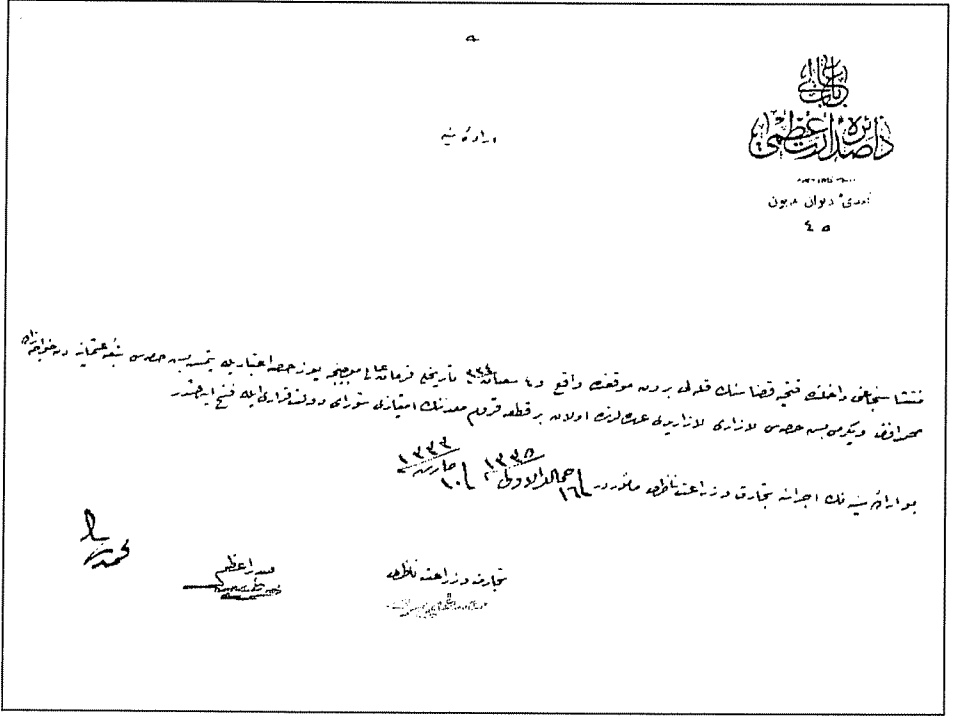 باب عالی
دائره صدارت عظمی
آمدی دیوان همایون
٤٥
اراده سنیه
منتشا سنجاغی داخلنده فتحیه قضاسنك قلولی برون موقعنده واقع و ٤ شعبان تاریخلی فرمان عالی موجبنجه یوز حصه اعتباریله یتمش بش حصه سی تبعه عثمانیه دن خواجه زاده
محمد افندی ویکرمی بش حصه سی لازاری لازاریدی عهده لرنده اولان بر قطعه قروم معدننك امتیازی شورای دولت قراریله فسخ ایدلمشدر
بو اراده سنیه نك اجراسنه تجارت وزراعت ناظری مأموردر ١٦ جمادی الاولی ١٣٣٥ ١٠ مارس ١٣٣٣
محمد رشاد
صدر اعظم
تجارت وزراعت ناظری